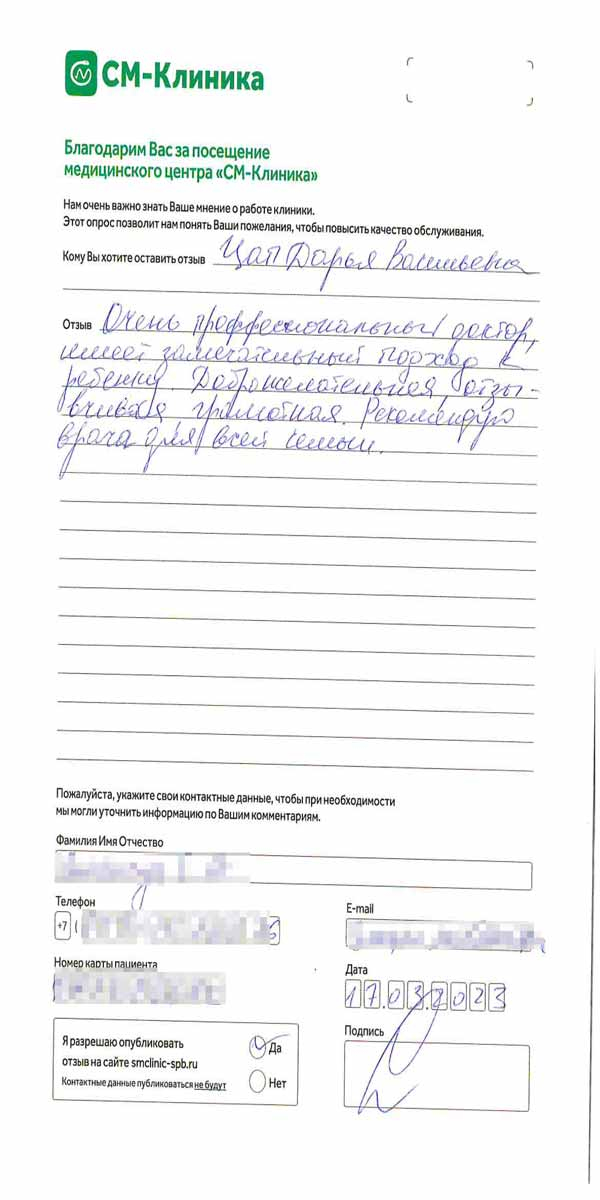 СМ-Клиника
Благодарим Вас за посещение
медицинского центра «СМ-Клиника»
Нам очень важно знать Ваше мнение о работе клиники.
Этот опрос позволит нам понять Ваши пожелания, чтобы повысить качество обслуживания.
Кому Вы хотите оставить отзыв Цап Дарья Васильевна
Отзыв Очень проффесиональный доктор,
имеет замечательный подход к
ребенку. Доброжелательная, отзы-
вчивая грамотная. Рекомендую
врача для всей семьи.
Пожалуйста, укажите свои контактные данные, чтобы при необходимости
мы могли уточнить информацию по Вашим комментариям.
Фамилия Имя Отчество
Телефон
E-mail
+7 (
Номер карты пациента
Дата
17.03.2023
Подпись
Я разрешаю опубликовать
отзыв на сайте smclinic-spb.ru
Контактные данные публиковаться не будут
Да
Нет